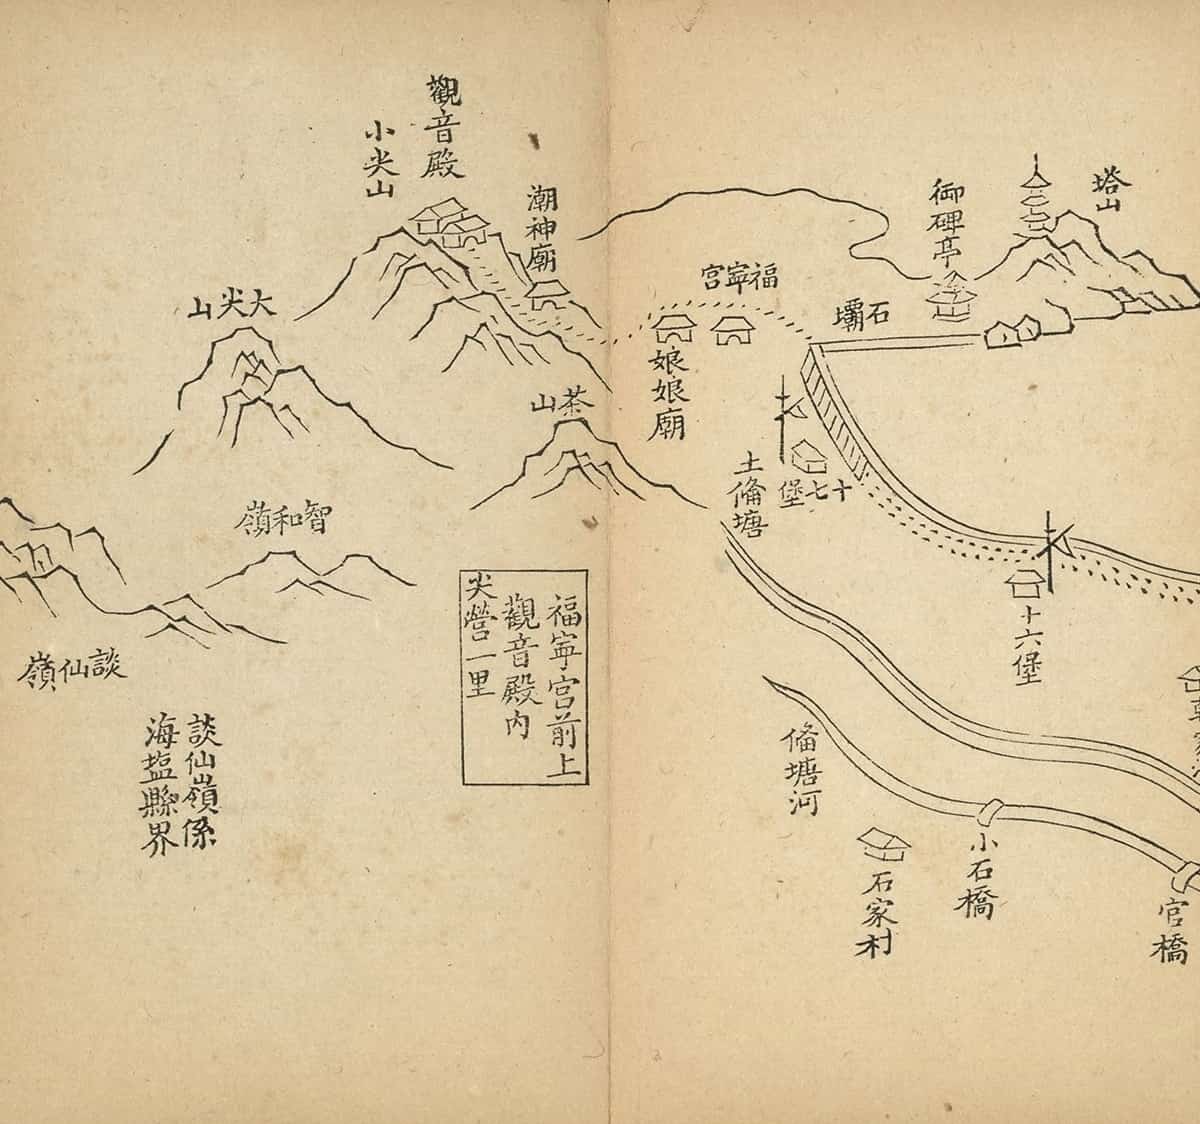 塔山
御碑亭
石壩
福寧宮
娘娘廟
十七堡
土俻塘
十六堡
官橋
小石橋
石家村
俻塘河
潮神廟
觀音殿
小尖山
大尖山
茶山
智和嶺
福寧宮前上
觀音殿內
尖營一里
談仙嶺
談仙嶺係
海塩縣界